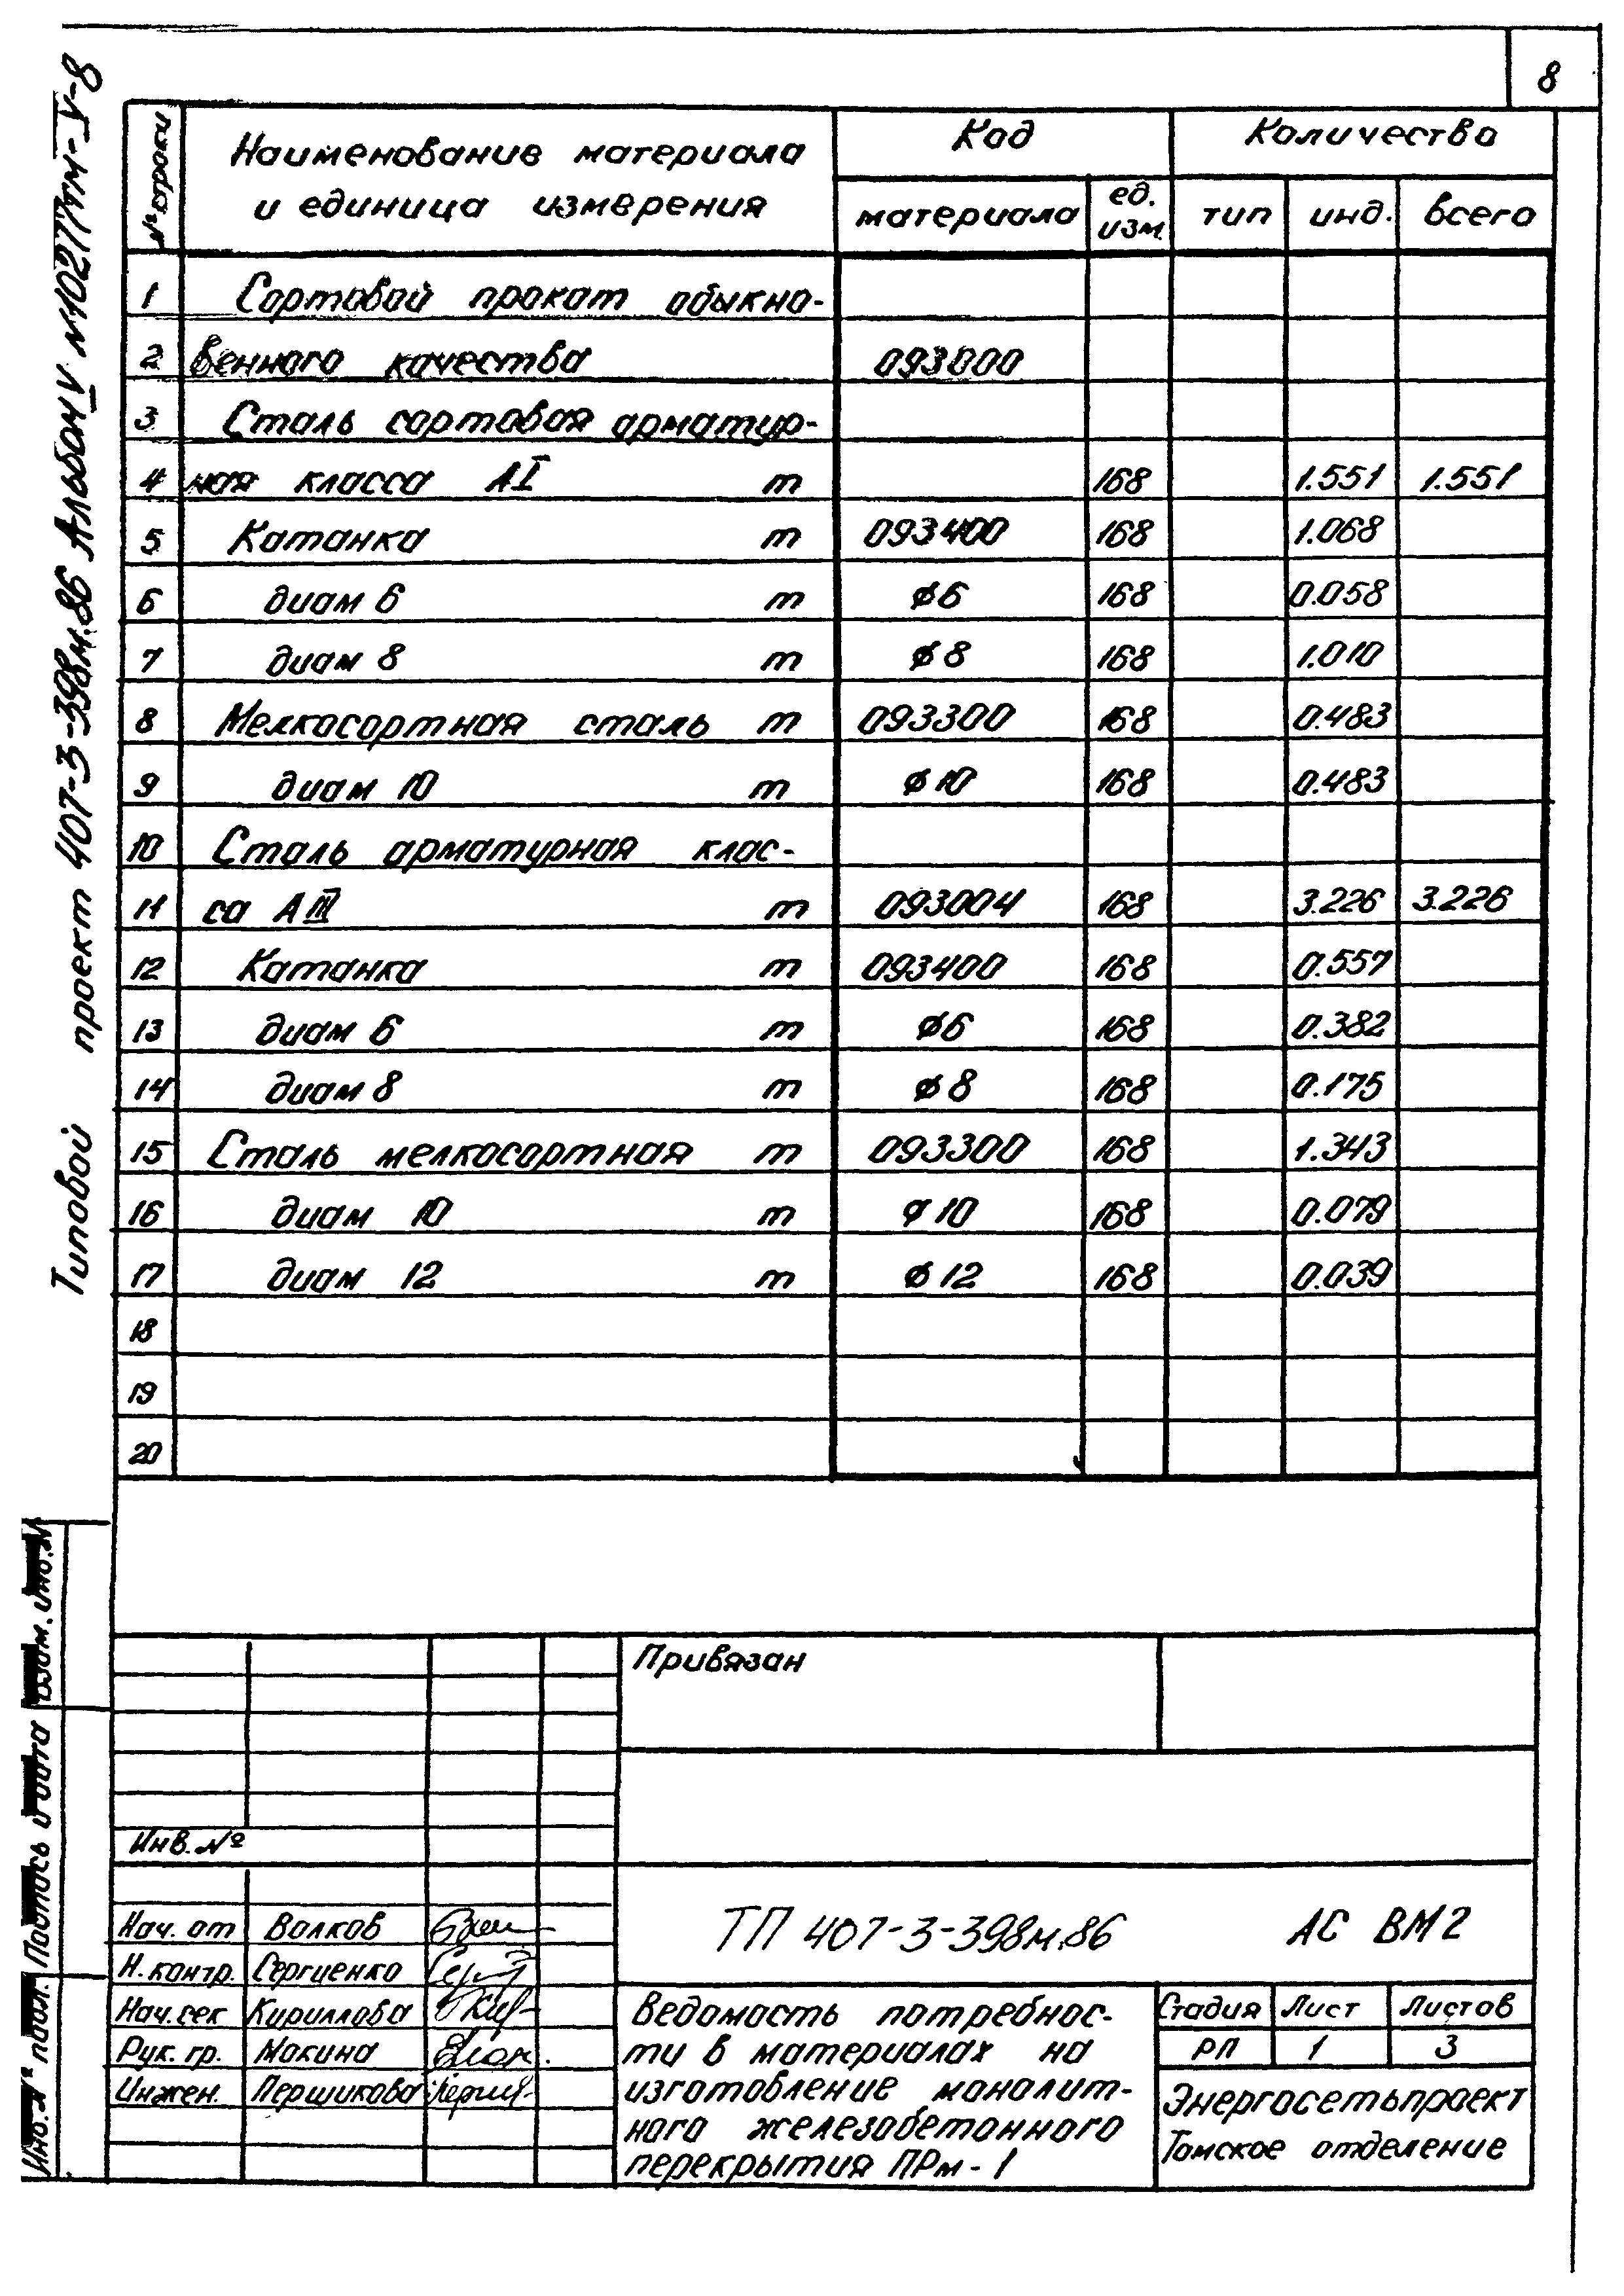 8
Типовой проект 407-3-398м.86 Альбом V №10277тм-V-8
№ строки
Наименование материала
и единица измерения
Код
Количество
материала
ед.
изм.
тип
инд.
всего
1 Сортовой прокат обыкно-
2 венного качества 093000
3 Сталь сортовая арматур-
4 ная класса АI т 168 1.551 1.551
5 Катанка т 093400 168 1.068
6 диам 6 т ø6 168 0.058
7 диам 8 т ø8 168 1.010
8 Мелкосортная сталь т 093300 168 0.483
9 диам 10 т ø10 168 0.483
10 Сталь арматурная клас-
11 са АIII т 093004 168 3.226 3.226
12 Катанка т 093400 168 0.557
13 диам 6 т ø6 168 0.382
14 диам 8 т ø8 168 0.175
15 Сталь мелкосортная т 093300 168 1.343
16 диам 10 т ø10 168 0.079
17 диам 12 т ø12 168 0.039
18
19
20
Взам. инв. №
Подпись и дата
Инв. № подл.
Привязан
Инв. №
ТП 407-3-398м.86 АС ВМ2
Нач. от Волков
Н. контр. Сергиенко
Нач. сек Кириллова
Рук. гр. Мокина
Инжен. Першикова
Ведомость потребнос-
ти в материалах на
изготовление монолит-
ного железобетонного
перекрытия ПРм-1
Стадия Лист Листов
РП 1 3
Энергосетьпроект
Томское отделение